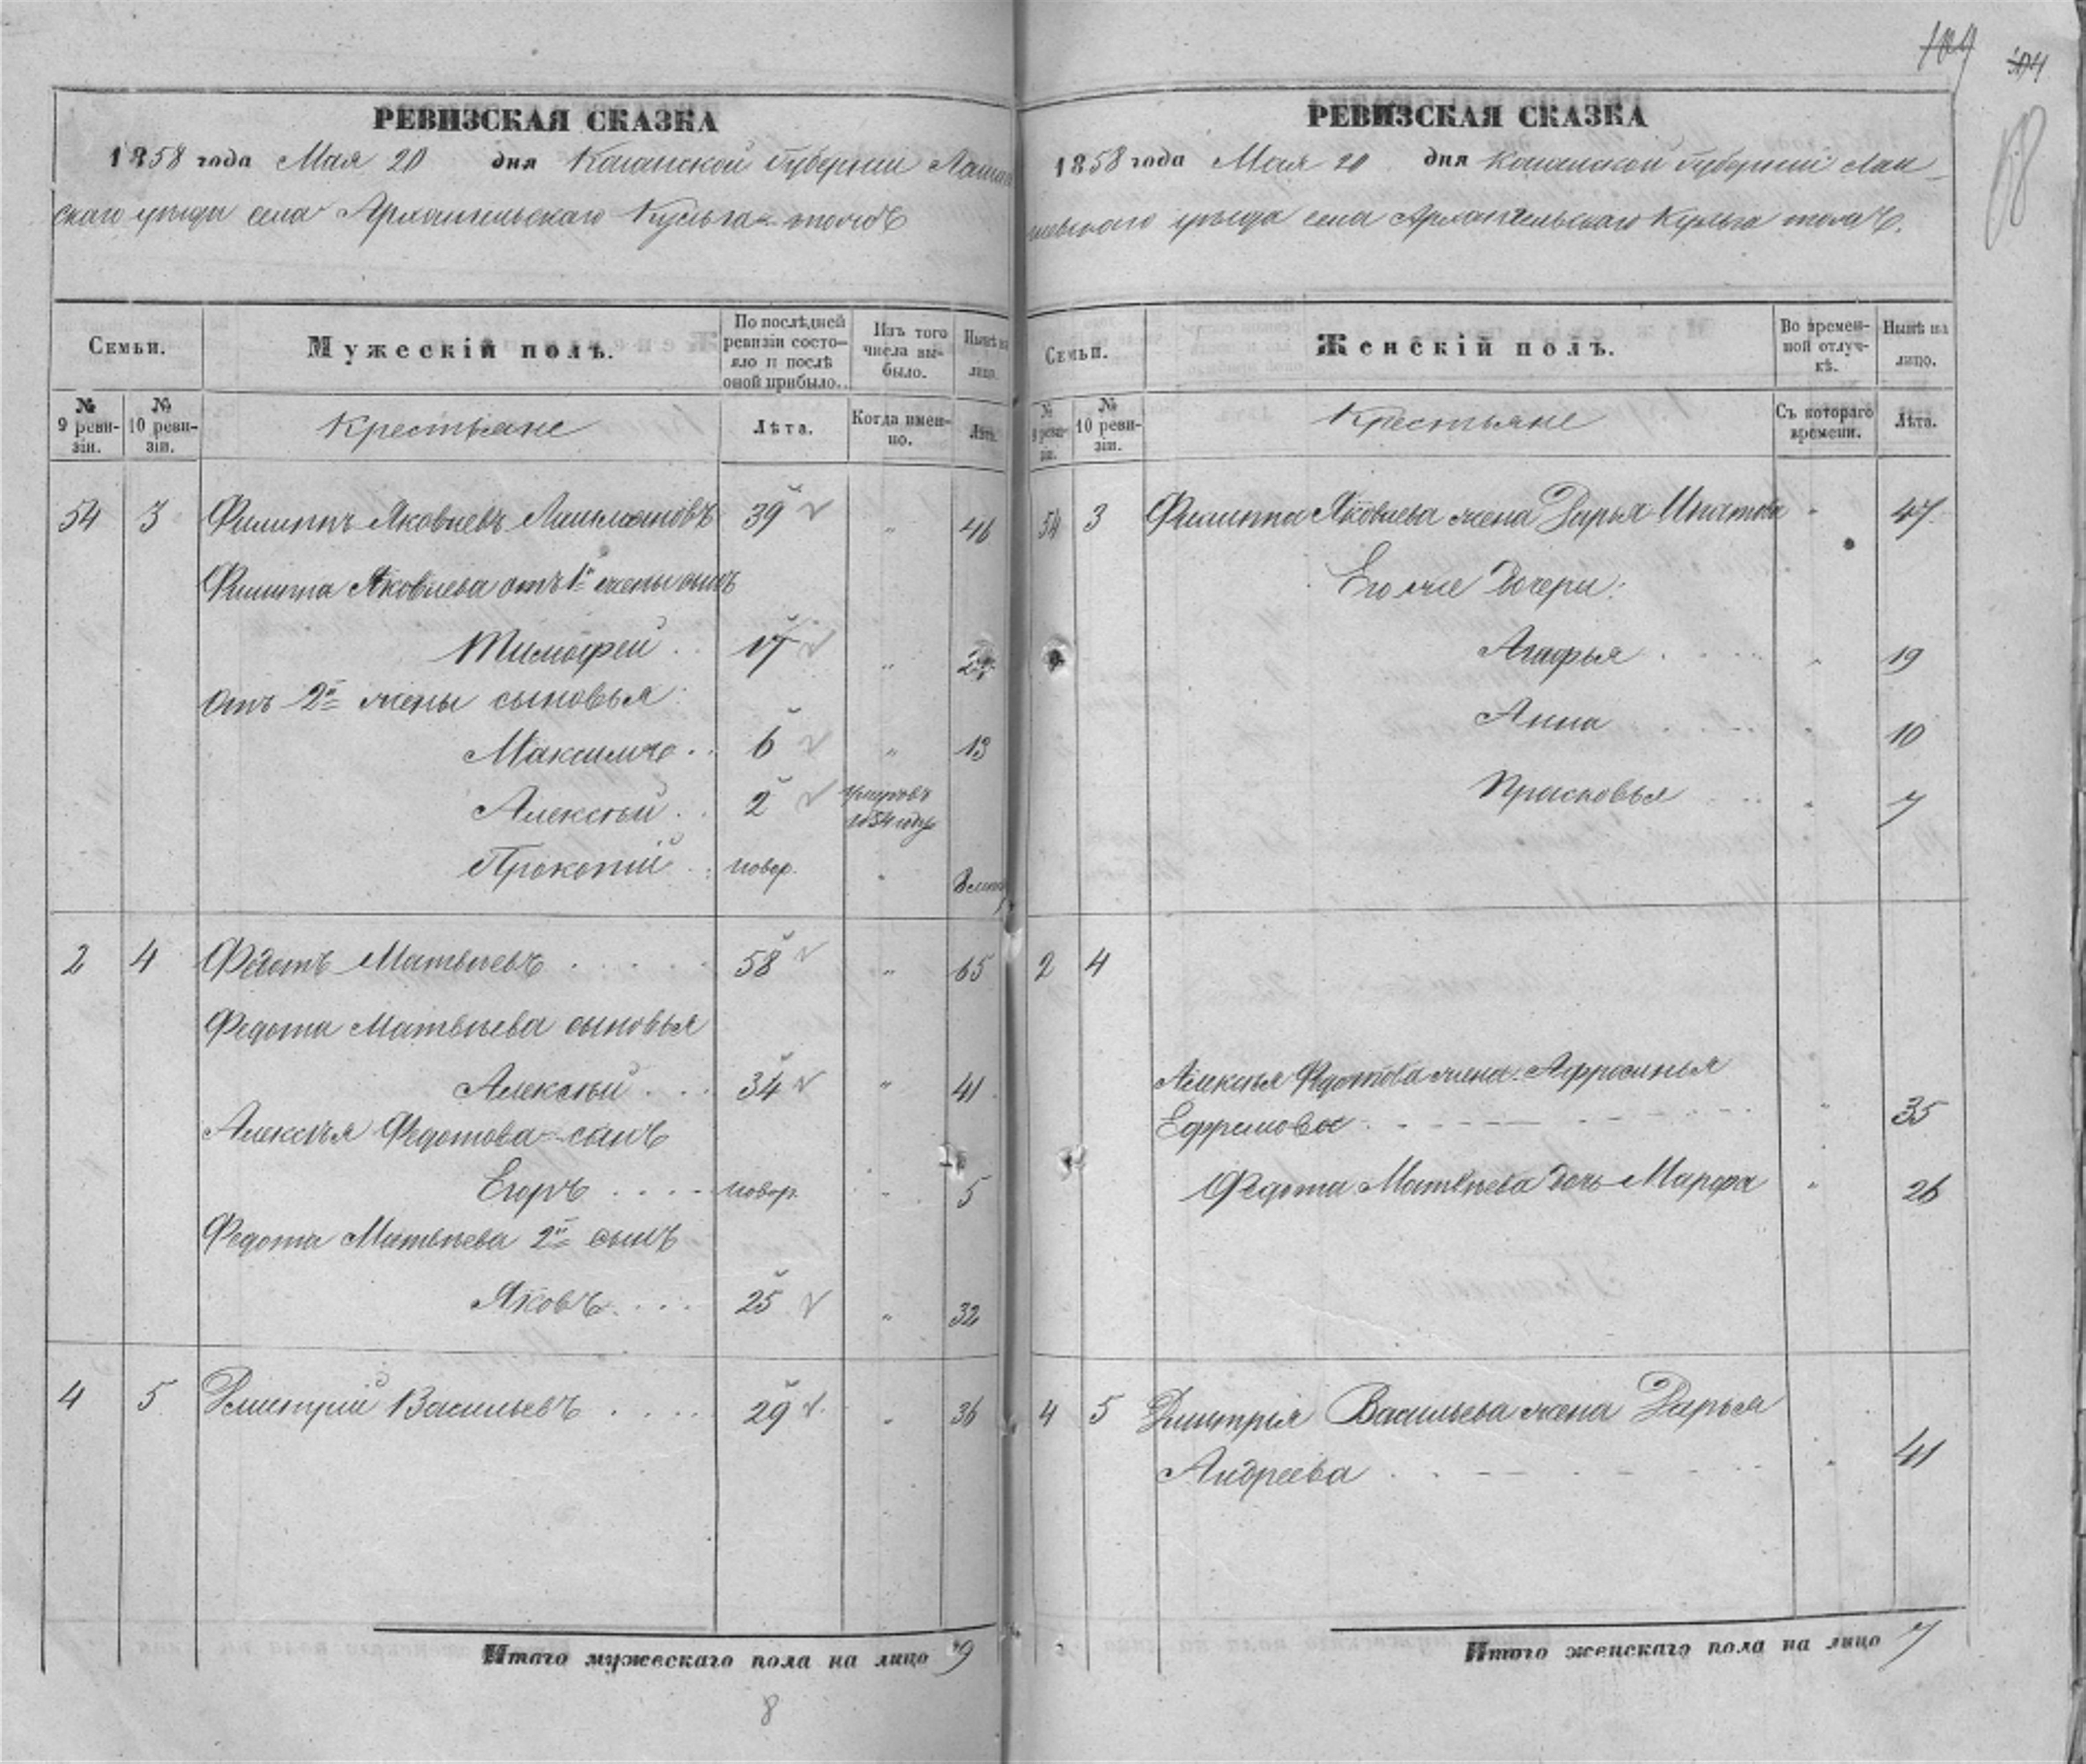 104 104
РЕВИЗСКАЯ СКАЗКА
1858 года Мая 20 дня Казанской Губернии Лаише
скаго уѣзда села Архангельскаго Кульга
Семьи.
Мужескій полъ.
По послѣдней ревизіи состояло и послѣ оной прибыло.
Изъ того числа выбыло.
Нынѣ на лицо.
№ 9 ревизіи.
№ 10 ревизіи.
Крестьяне
Лѣта.
Когда именно.
Лѣта.
54 3 Филиппъ Яковлевъ 39 " 46
Филиппа Яковлева отъ 1й жены сынъ
Тимофей . . 17 " 24
отъ 2й жены сыновья:
Максимъ . . 6 " 13
Алексѣй . . 2 умеръ въ 1854 году
Прокопій . . новор. "
2 4 Федотъ Матвѣевъ . . . . . 58 " 65
Федота Матвѣева сыновья
Алексѣй . . . 34 " 41
Алексѣя Федотова сынъ
Егоръ . . . . новор. " 5
Федота Матвѣева 2й сынъ
Яковъ . . . . 25 " 32
4 5 Дмитрий Васильевъ . . . . 29 " 36
Итого мужескаго пола на лицо 9
8
РЕВИЗСКАЯ СКАЗКА
1858 года Мая 20 дня Казанской Губернии Лаи-
шевскаго уѣзда села Архангельскаго Кульга
Семьи.
Женскій полъ.
Во временной отлучкѣ.
Нынѣ на лицо.
№ 9 ревизіи.
№ 10 ревизіи.
Крестьяне
Съ котораго времени.
Лѣта.
54 3 Филиппа Яковлева жена Дарья Ипатова " 47
Его же Дочери:
Агафья . . . . " 19
Анна . . . . " 10
Прасковья . . . " 7
2 4
Алексѣя Федотова жена Афросинья
Ефремова . . . . " 35
Федота Матвѣева дочь Марфа " 26
4 5 Дмитрія Васильева жена Дарья
Андреева . . . . " 41
Итого женскаго пола на лицо 7